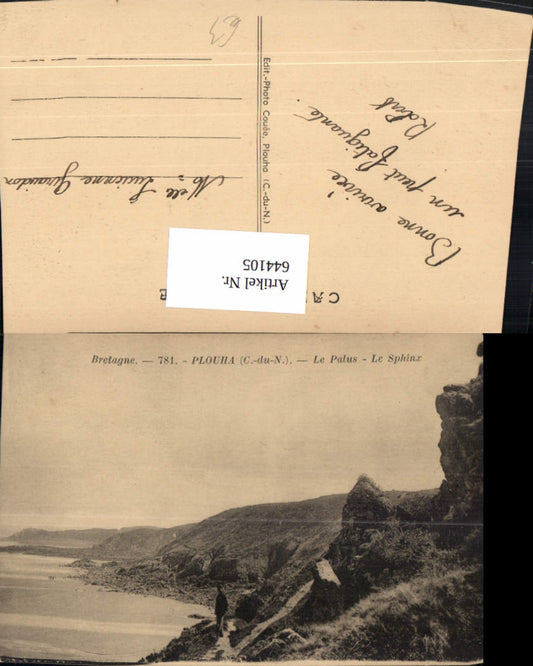 63
Edit.-Photo Couée, Plouha (C.-du-N.)
Bonne arrivée
un peut fatiguante.
Robert
Melle Lucienne
CA
Artikel Nr.
644105
Bretagne. — 781. - PLOUHA (C.-du-N.). — Le Palus - Le Sphinx